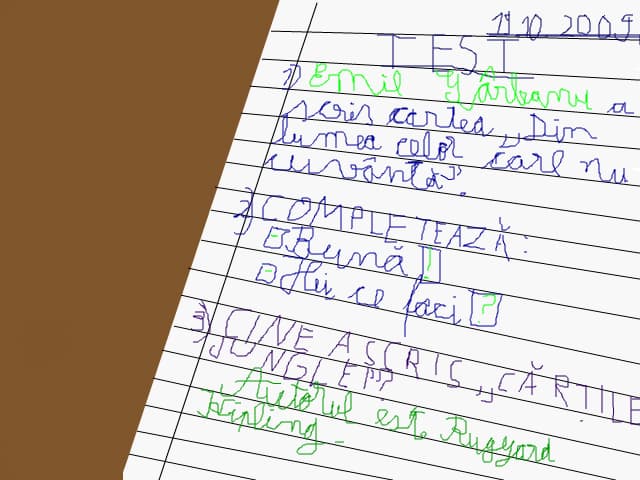 19.10.2009
TEST
1) Emil Gârleanu a
scris cartea „Din
lumea celor care nu
cuvântă”.
2) COMPLETEAZĂ:
- Bună !
- Hei ce faci ?
3) CINE A SCRIS „CĂRȚILE
JUNGLEI”?
Autorul este Rugyard
Kipling.